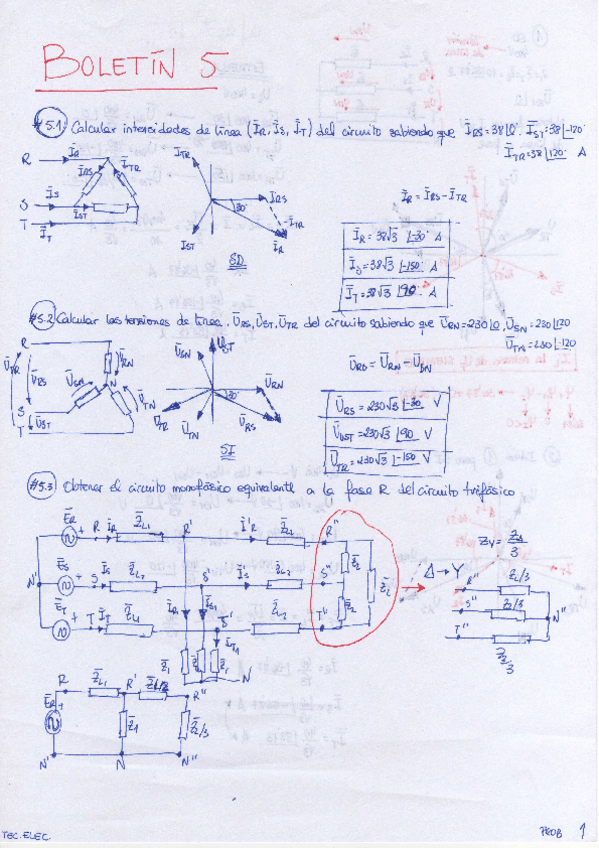 BOLETÍN 5
#5.1 Calcular intensidades de línea (ĪR, ĪS, ĪT) del circuito sabiendo que ĪRS=38∠0. ĪST=38∠-120·
ĪTR=38∠120· A
R ĪR ĪRS ĪTR
S ĪS
T ĪST
ĪT
ITR
IRS
30·
-ITR
IST
IR
SD
ĪR = ĪRS - ĪTR
ĪR = 38√3 ∠-30· A
ĪS = 38√3 ∠-150· A
ĪT = 38√3 ∠90· A
#5.2 Calcular las tensiones de línea, ŪRS, ŪST, ŪTR del circuito sabiendo que ŪRN=230∠0, ŪSN=230∠120
ŪTN=230∠-120
R
ŪTR ŪRS ŪRN
ŪSN N
S
T ŪST ŪTN
ŪSN ŪST
ŪRN
30·
ŪTR ŪTN ŪRS
SI
ŪRS = ŪRN - ŪSN
ŪRS = 230√3 ∠-30 V
ŪST = 230√3 ∠90 V
ŪTR = 230√3 ∠-150 V
#5.3 Obtener el circuito monofásico equivalente a la fase R del circuito trifásico
ĒR R ĪR Z̄L1 R' Ī'R Z̄L2 R''
N' ĒS S ĪS Z̄L1 S' Z̄L2 S'' Z̄2 Z̄2
ĒT T ĪT Z̄L1 T' Z̄L2 T'' Z̄2
Z̄1 Z̄1 Z̄1 N
Δ→Y
Z̄Y = Z̄Δ/3
R'' Z̄2/3
S'' Z̄2/3 N''
T'' Z̄2/3
R Z̄L1 R' Z̄L2 R''
ĒR Z̄1 Z̄2/3
N' N N''
TEC. ELEC. PROB 1